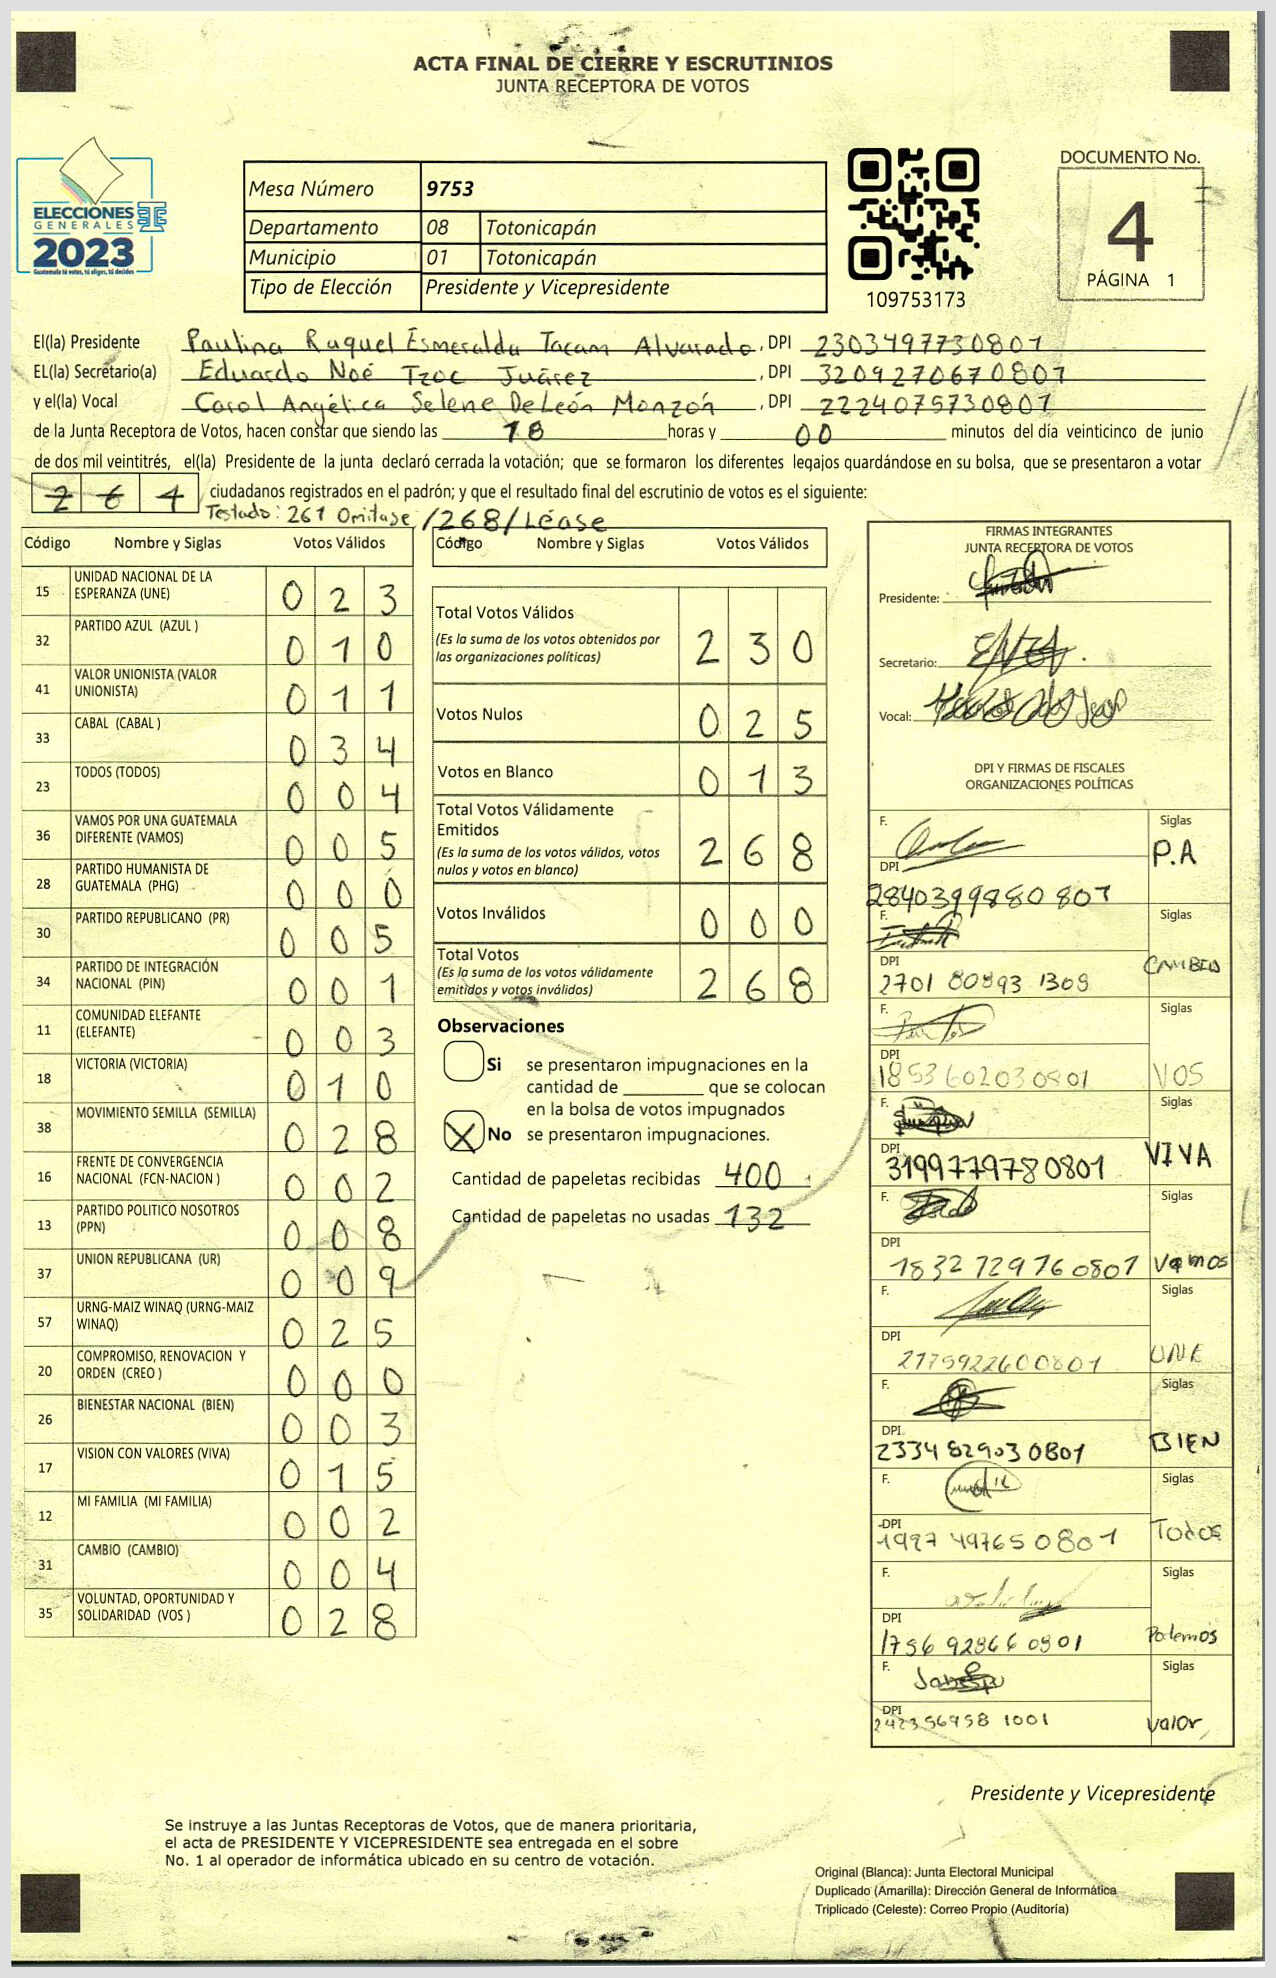 ACTA FINAL DE CIERRE Y ESCRUTINIOS
JUNTA RECEPTORA DE VOTOS
ELECCIONES
GENERALES
2023
Guatemala tú votas, tú eliges, tú decides
Mesa Número 9753
Departamento 08 Totonicapán
Municipio 01 Totonicapán
Tipo de Elección Presidente y Vicepresidente
109753173
DOCUMENTO No.
4
PÁGINA 1
El(la) Presidente Paulina Raquel Esmeralda Tacam Alvarado, DPI 2303497730801
EL(la) Secretario(a) Eduardo Noé Tzoc Juárez, DPI 3209270670801
y el(la) Vocal Carol Angélica Selene DeLeón Monzón, DPI 2224075730801
de la Junta Receptora de Votos, hacen constar que siendo las 18 horas y 00 minutos del día veinticinco de junio
de dos mil veintitrés, el(la) Presidente de la junta declaró cerrada la votación; que se formaron los diferentes legajos quardándose en su bolsa, que se presentaron a votar
264 ciudadanos registrados en el padrón; y que el resultado final del escrutinio de votos es el siguiente:
Testado: 261 Omitase /268/ Léase
Código Nombre y Siglas Votos Válidos
15 UNIDAD NACIONAL DE LA ESPERANZA (UNE) 0 2 3
32 PARTIDO AZUL (AZUL ) 0 1 0
41 VALOR UNIONISTA (VALOR UNIONISTA) 0 1 1
33 CABAL (CABAL ) 0 3 4
23 TODOS (TODOS) 0 0 4
36 VAMOS POR UNA GUATEMALA DIFERENTE (VAMOS) 0 0 5
28 PARTIDO HUMANISTA DE GUATEMALA (PHG) 0 0 0
30 PARTIDO REPUBLICANO (PR) 0 0 5
34 PARTIDO DE INTEGRACIÓN NACIONAL (PIN) 0 0 1
11 COMUNIDAD ELEFANTE (ELEFANTE) 0 0 3
18 VICTORIA (VICTORIA) 0 1 0
38 MOVIMIENTO SEMILLA (SEMILLA) 0 2 8
16 FRENTE DE CONVERGENCIA NACIONAL (FCN-NACION ) 0 0 2
13 PARTIDO POLITICO NOSOTROS (PPN) 0 0 8
37 UNION REPUBLICANA (UR) 0 0 9
57 URNG-MAIZ WINAQ (URNG-MAIZ WINAQ) 0 2 5
20 COMPROMISO, RENOVACION Y ORDEN (CREO ) 0 0 0
26 BIENESTAR NACIONAL (BIEN) 0 0 3
17 VISION CON VALORES (VIVA) 0 1 5
12 MI FAMILIA (MI FAMILIA) 0 0 2
31 CAMBIO (CAMBIO) 0 0 4
35 VOLUNTAD, OPORTUNIDAD Y SOLIDARIDAD (VOS ) 0 2 8
Código Nombre y Siglas Votos Válidos
Total Votos Válidos 2 3 0
(Es la suma de los votos obtenidos por
las organizaciones políticas)
Votos Nulos 0 2 5
Votos en Blanco 0 1 3
Total Votos Válidamente
Emitidos 2 6 8
(Es la suma de los votos válidos, votos
nulos y votos en blanco)
Votos Inválidos 0 0 0
Total Votos 2 6 8
(Es la suma de los votos válidamente
emitidos y votos inválidos)
Observaciones
Si se presentaron impugnaciones en la
cantidad de ________ que se colocan
en la bolsa de votos impugnados
No se presentaron impugnaciones.
Cantidad de papeletas recibidas 400
Cantidad de papeletas no usadas 132
FIRMAS INTEGRANTES
JUNTA RECEPTORA DE VOTOS
Presidente:
Secretario:
Vocal:
DPI Y FIRMAS DE FISCALES
ORGANIZACIONES POLÍTICAS
F. Siglas
DPI P.A
2840399880807
F. Siglas
DPI CAMBIO
2701 80893 1308
F. Siglas
DPI
1853602030801 VOS
F. Siglas
DPI VIVA
3199779780801
F. Siglas
DPI
1832729760801 Vamos
F. Siglas
DPI
2175922600801 UNE
F. Siglas
DPI BIEN
2334829030801
F. Siglas
DPI Todos
1997497650801
F. Siglas
DPI Podemos
1756928660801
F. Siglas
DPI valor
2423569581001
Presidente y Vicepresidente
Se instruye a las Juntas Receptoras de Votos, que de manera prioritaria,
el acta de PRESIDENTE Y VICEPRESIDENTE sea entregada en el sobre
No. 1 al operador de informática ubicado en su centro de votación.
Original (Blanca): Junta Electoral Municipal
Duplicado (Amarilla): Dirección General de Informática
Triplicado (Celeste): Correo Propio (Auditoría)